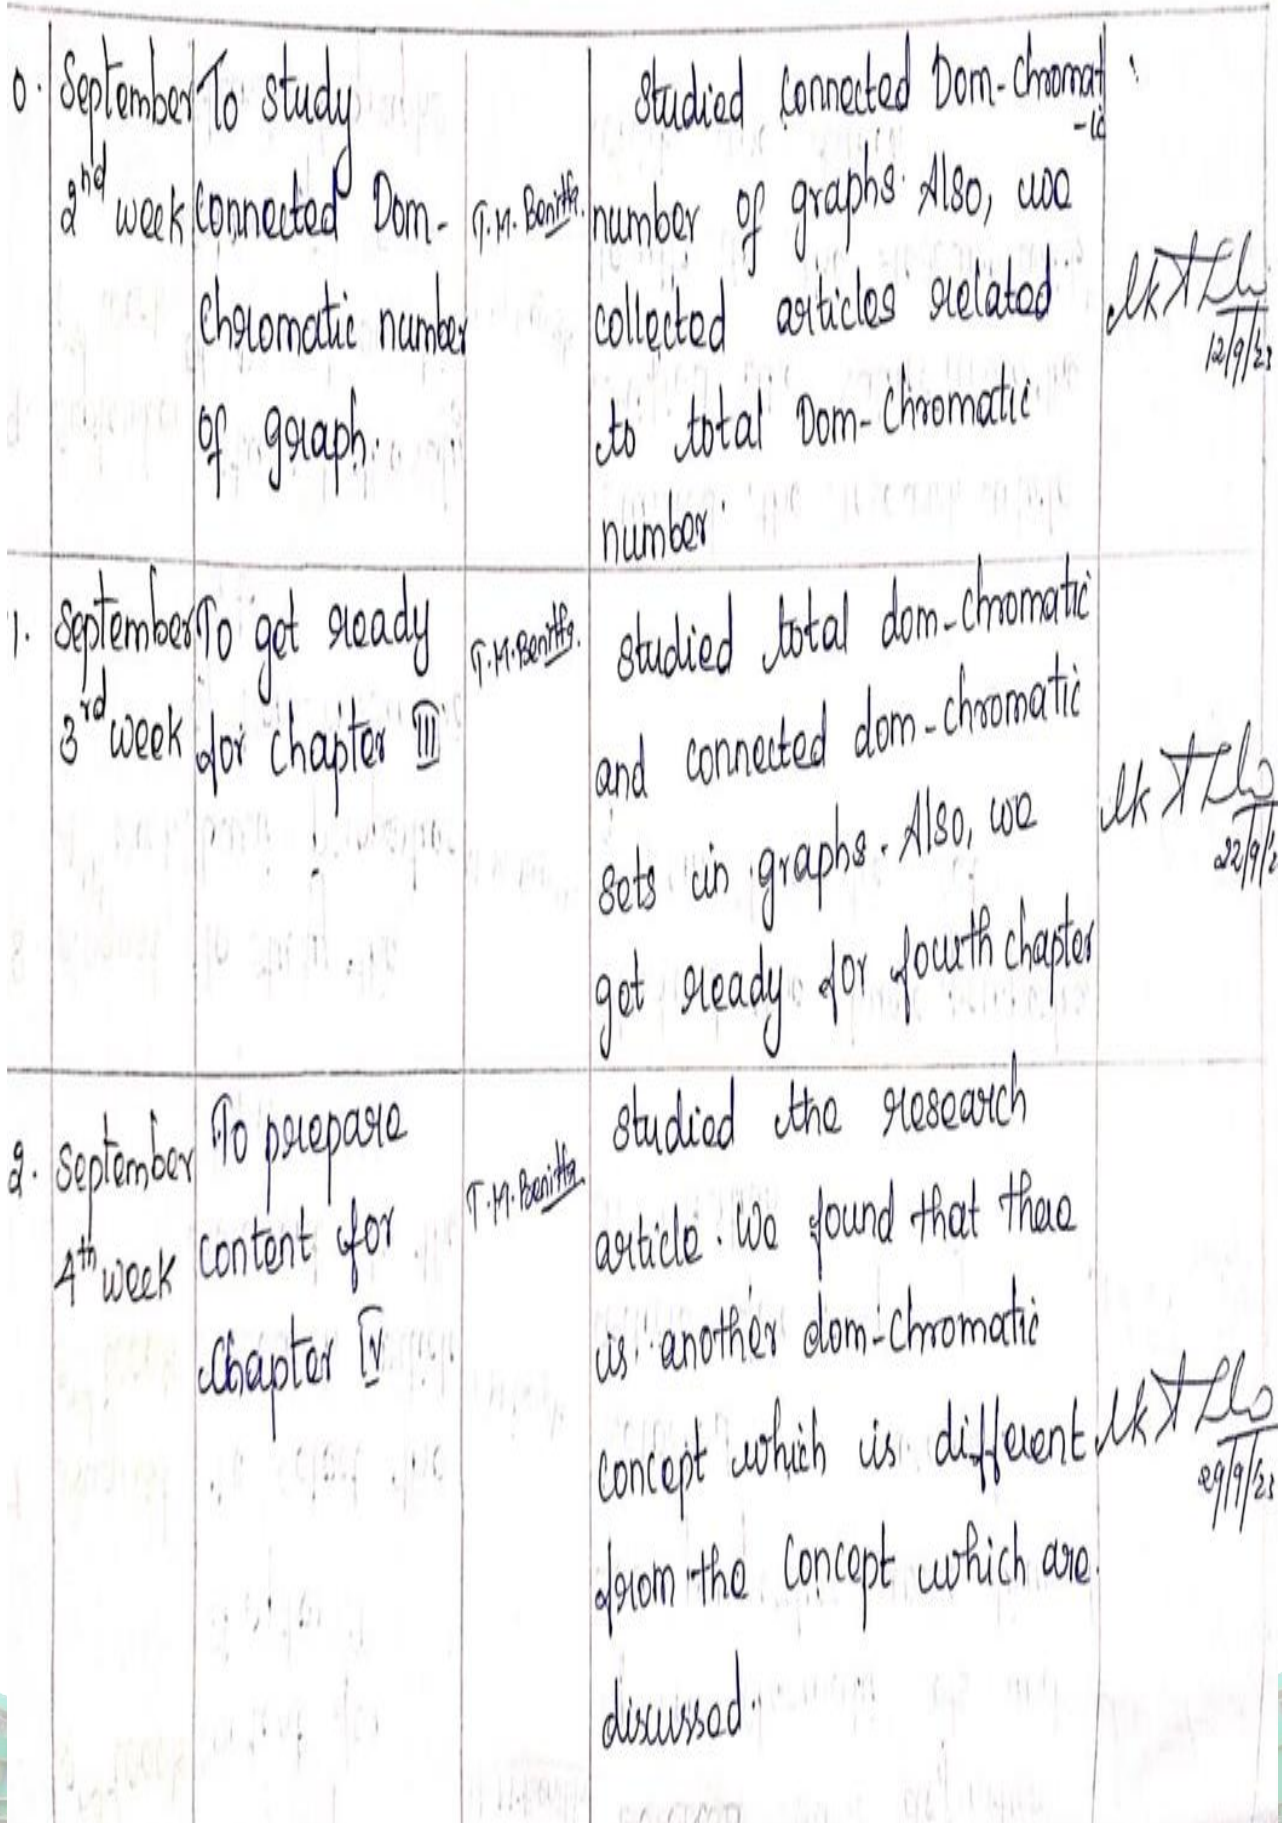 0. September
2nd week
To study
connected Dom-
Chromatic number
of graph.
T.M. Benitta.
studied connected Dom-Chromat
-ic
number of graphs. Also, we
collected articles related
to total Dom-Chromatic
number.
12/9/23
1. September
3rd week
To get ready
for chapter III
T.M. Benitta.
studied total dom-chromatic
and connected dom-chromatic
sets in graphs. Also, we
get ready for fourth chapter
22/9/2
2. September
4th week
To prepare
content for
Chapter IV
T.M. Benitta
studied the research
article. We found that thae
is another dom-chromatic
concept which is different
from the concept which are
discussed.
29/9/23